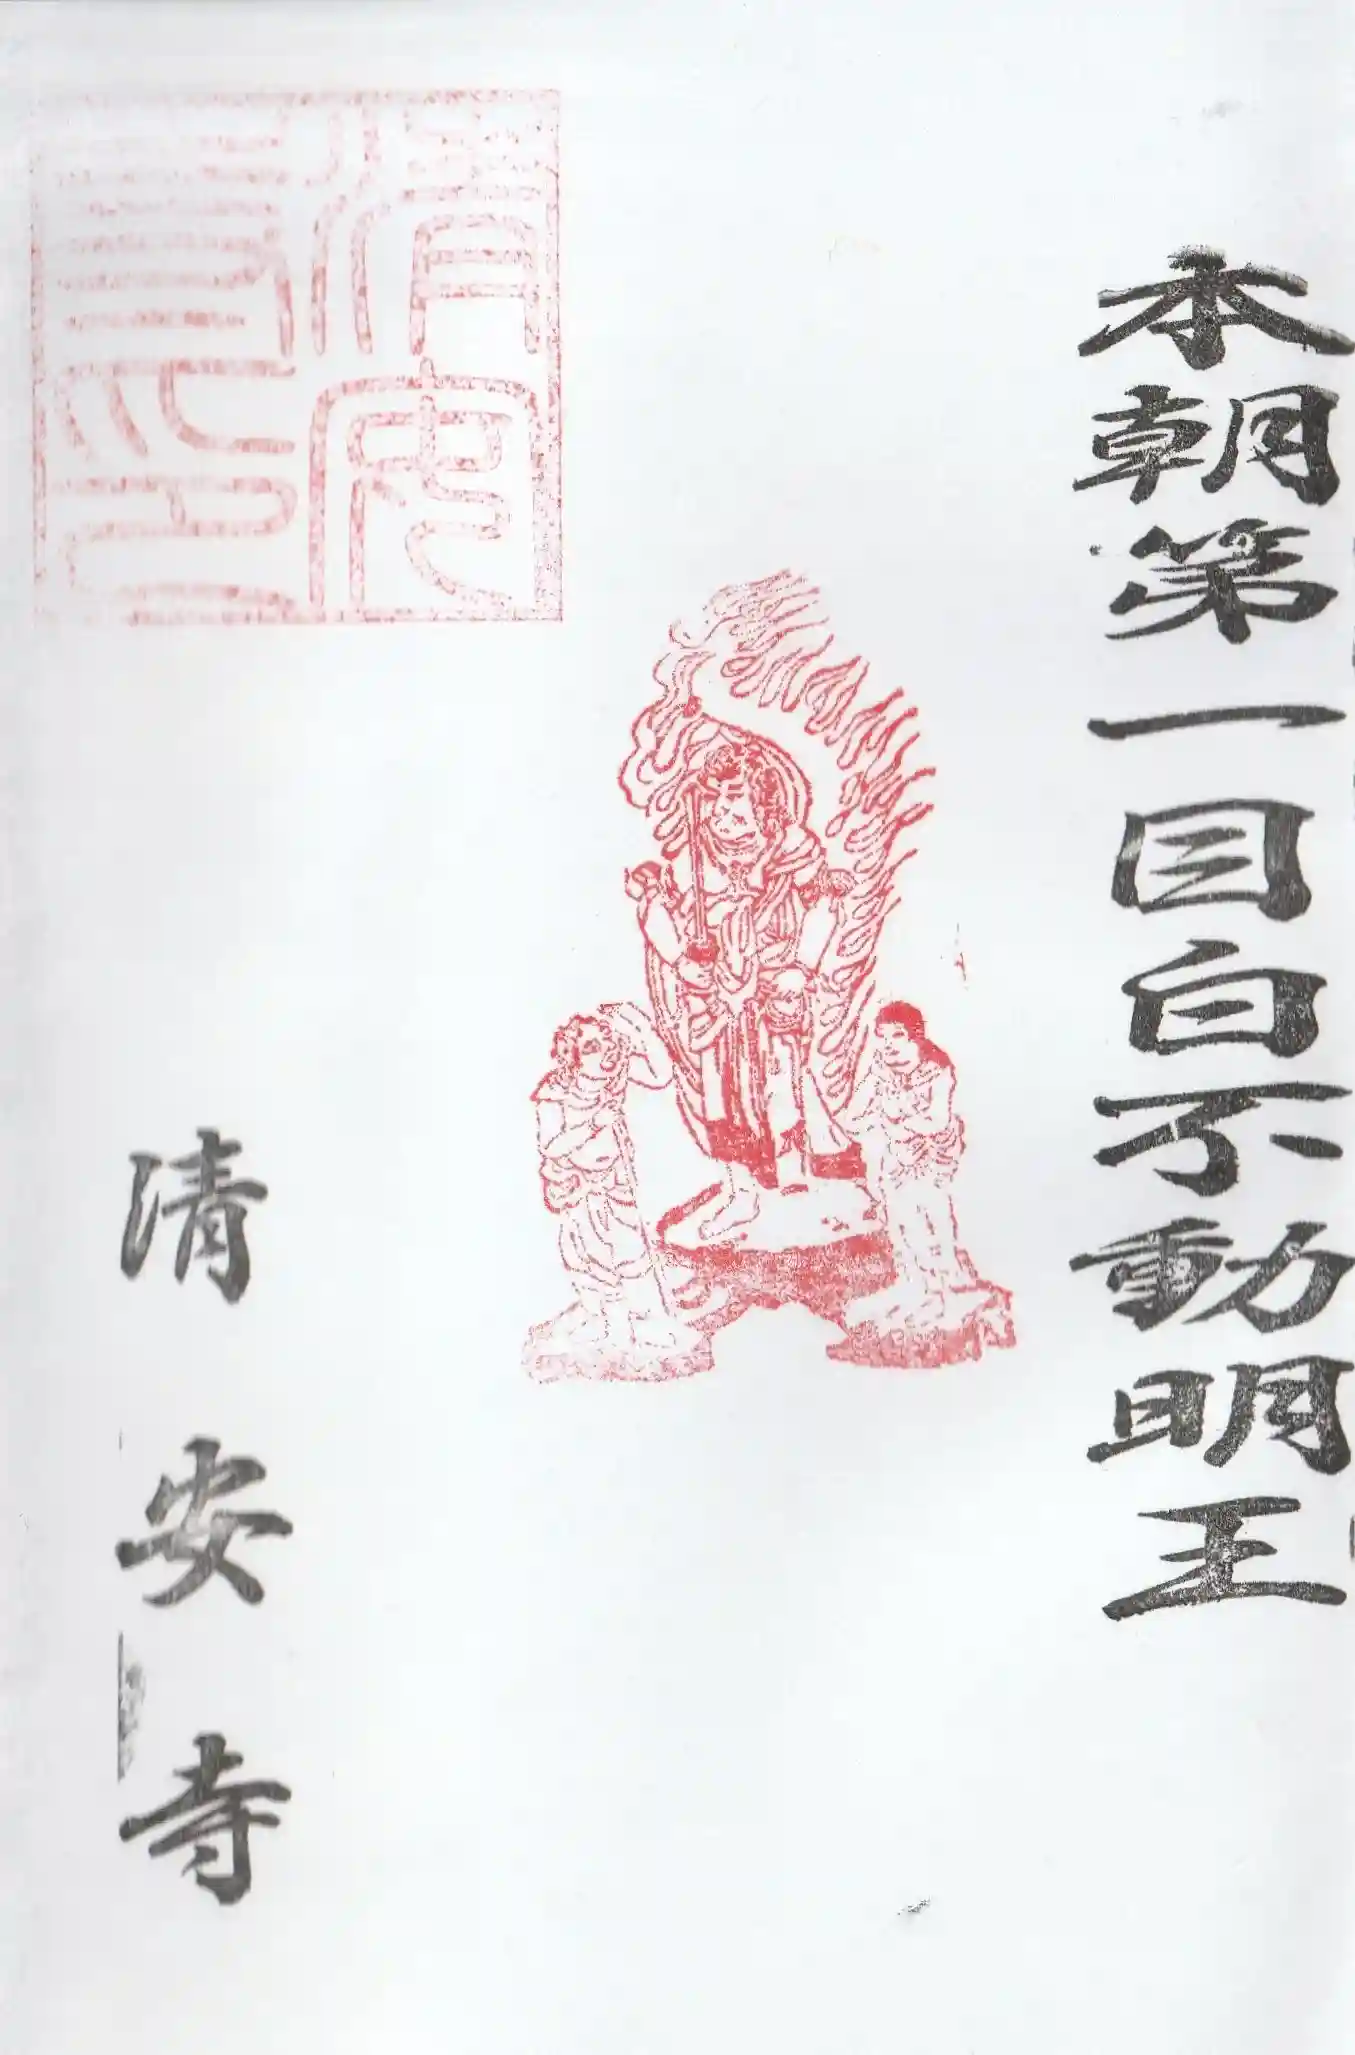 本朝第一目白不動明王
清安
印
清安寺